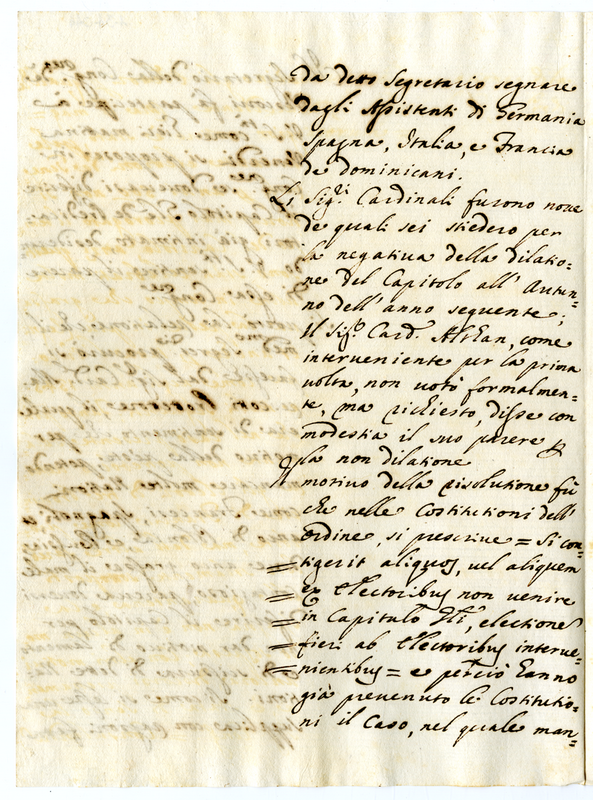 da detto Segretario segnare
dagli Assistenti di Germania
Spagna, Italia, e Francia
de Dominicani.
Li Sig.ri Cardinali furono nove
de quali sei stiedero per
la negativa della dilatio=
ne del Capitolo all' Autun=
no dell' anno seguente;
Il Sig.r Card. Althan, come
interveniente per la prima
volta, non votò formalmen=
te, ma richiesto, disse con
modestia il suo parere p
la non dilatione
Il motivo della risolutione fù
che nelle Costitutioni dell'
Ordine, si prescrive = Si con=
= tigerit aliquos, vel aliquem
= ex Electoribus non venire
= in Capitulo Gli, electione
= fieri ab Electoribus interve=
= nientibus = e perciò hanno
già prevenuto le Costitutio=
ni il Caso, nel quale man=